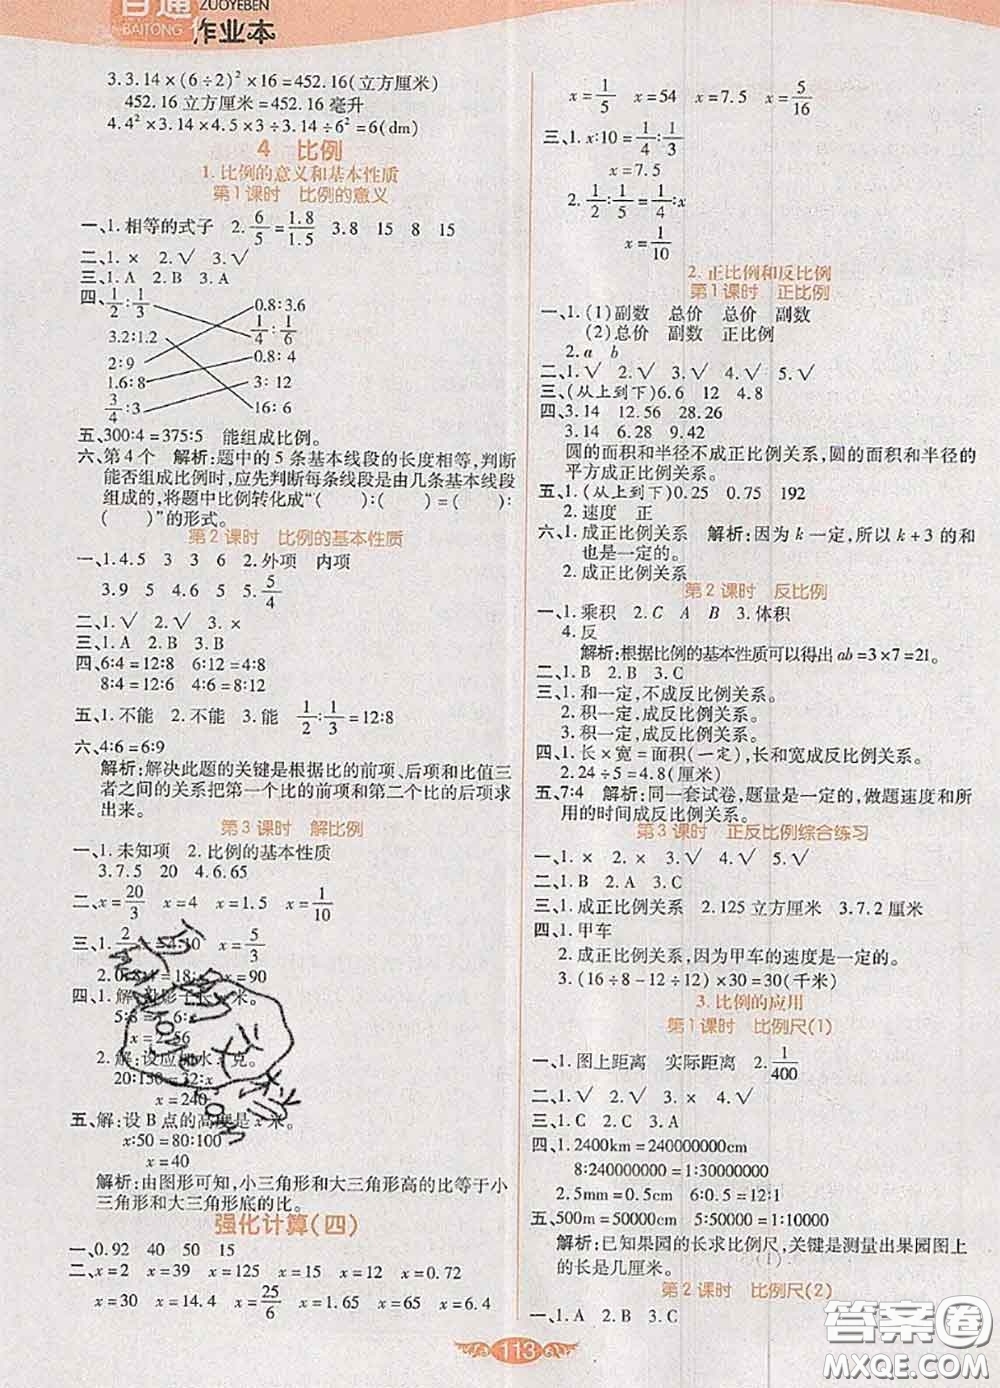 百通
BAITONG
ZUOYEBEN
作业本
3.3.14×(6÷2)²×16=452.16(立方厘米)
452.16立方厘米=452.16毫升
4.4²×3.14×4.5×3÷3.14÷6²=6(dm)
4 比例
1.比例的意义和基本性质
第1课时 比例的意义
一、1.相等的式子 2.6/5=1.8/1.5 3.8 15 8 15
二、1.× 2.√ 3.√
三、1.A 2.B 3.A
四、1/2:1/3 0.8:3.6
3.2:1.2 1/4:1/6
2:9 0.8:4
1.6:8 3:12
3/4:3 16:6
五、300:4=375:5 能组成比例。
六、第4个 解析:题中的5条基本线段的长度相等,判断
能否组成比例时,应先判断每条线段是由几条基本线段
组成的,将题中比例转化成“( ):( )=( ):
( )”的形式。
第2课时 比例的基本性质
一、1.4.5 3 3 6 2.外项 内项
3.9 5 4.6 5.5/4
二、1.√ 2.√ 3.×
三、1.A 2.B 3.B
四、6:4=12:8 6:12=4:8
8:4=12:6 4:6=8:12
五、1.不能 2.不能 3.能 1/2:1/3=12:8
六、4:6=6:9
解析:解决此题的关键是根据比的前项、后项和比值三
者之间的关系把第一个比的前项和第二个比的后项求
出来。
第3课时 解比例
一、1.未知项 2.比例的基本性质
3.7.5 20 4.6.65
二、x=20/3 x=4 x=1.5 x=1/10
三、1. x=5/3
2.0.8:4=18:x x=90
四、1.解:设影子长x米。
x=2.56
2.解:设应加水x克。
20:150=32:x
x=240
五、解:设B点的高度是x米。
x:50=80:100
x=40
解析:由图形可知,小三角形和大三角形高的比等于小
三角形和大三角形底的比。
强化计算(四)
一、0.92 40 50 15
二、x=2 x=39 x=125 x=15 x=12 x=0.72
x=30 x=14.4 x=25/6 x=1.65 x=65 x=6.4
x=1/5 x=54 x=7.5 x=5/16
三、1.x:10=1/4:1/3
x=7.5
2.1/2:1/5=1/4:x
x=1/10
2.正比例和反比例
第1课时 正比例
一、1.(1)副数 总价 总价 副数
(2)总价 副数 正比例
2.a b
二、1.√ 2.√ 3.√ 4.√ 5.√
三、(从上到下)6.6 12 4.8
四、3.14 12.56 28.26
3.14 6.28 9.42
圆的面积和半径不成正比例关系,圆的面积和半径的
平方成正比例关系。
五、1.(从上到下)0.25 0.75 192
2.速度 正
六、1.成正比例关系 解析:因为k一定,所以k+3的和
也是一定的。
2.成正比例关系
第2课时 反比例
一、1.乘积 2.C A B 3.体积
4.反
解析:根据比例的基本性质可以得出ab=3×7=21。
二、1.B 2.B 3.C
三、1.和一定,不成反比例关系。
2.积一定,成反比例关系。
3.积一定,成反比例关系。
四、1.长×宽=面积(一定),长和宽成反比例关系。
2.24÷5=4.8(厘米)
五、7:4 解析:同一套试卷,题量是一定的,做题速度和所
用的时间成反比例关系。
第3课时 正反比例综合练习
一、1.× 2.× 3.√ 4.× 5.√
二、1.B 2.A 3.C
三、1.成正比例关系 2.125立方厘米 3.7.2厘米
四、1.甲车
2.成正比例关系,因为甲车的速度是一定的。
3.(16÷8-12÷12)×30=30(千米)
3.比例的应用
第1课时 比例尺(1)
一、1.图上距离 实际距离 2.1/400
二、1.√ 2.× 3.√ 4.√
三、1.C 2.C 3.A
四、1.2400km=240000000cm
8:240000000=1:30000000
2.5mm=0.5cm 6:0.5=12:1
五、500m=50000cm 5:50000=1:10000
解析:已知果园的长求比例尺,关键是测量出果园图上
的长是几厘米。
第2课时 比例尺(2)
一、1.A 2.B 3.C
113
答案圈
MXQE.COM